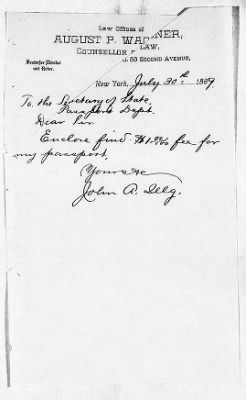 Law Offices of
AUGUST P. WAGNER,
COUNSELLOR LAW,
60 SECOND AVENUE,
Deutscher Advokat
und Notar.
New York, July 30th 1889
To the Secretary of State,
Passport Dept.
Dear Sir
Enclose find $1 00/100 fee for
my passport.
Yours &c
John A.